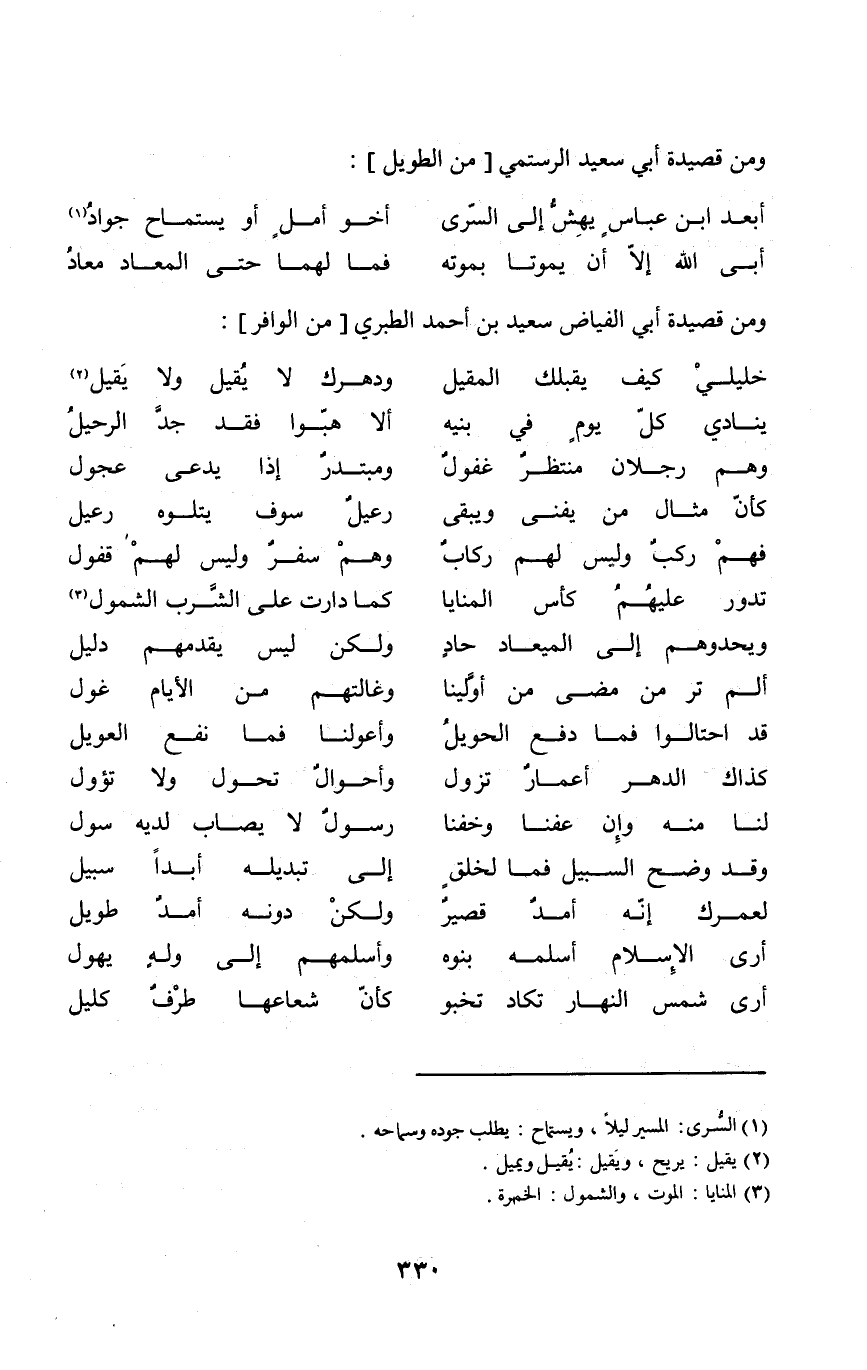 ومن قصيدة أبي سعيد الرستمي [ من الطويل ] :
أبعد ابن عباسٍ يهشُّ إلى السّرى أخو أملٍ أو يستماح جوادُ(١)
أبى الله إلاّ أن يموتا بموته فما لهما حتى المعاد معادُ
ومن قصيدة أبي الفياض سعيد بن أحمد الطبري [ من الوافر ] :
خليليْ كيف يقبلك المقيل ودهرك لا يُقيل ولا يَقيل(٢)
ينادي كلّ يومٍ في بنيه ألا هبّوا فقد جدَّ الرحيلُ
وهم رجلان منتظرٌ غفولٌ ومبتدرٌ إذا يدعى عجول
كأنّ مثال من يفنى ويبقى رعيلٌ سوف يتلوه رعيل
فهمْ ركبٌ وليس لهم ركابٌ وهمْ سفرٌ وليس لهمْ قفول
تدور عليهُمُ كأس المنايا كما دارت على الشَّرب الشمول(٣)
ويحدوهم إلى الميعاد حادٍ ولكن ليس يقدمهم دليل
ألم تر من مضى من أوّلينا وغالتهم من الأيام غول
قد احتالوا فما دفع الحويلُ وأعولنا فما نفع العويل
كذاك الدهر أعمارٌ تزول وأحوالٌ تحول ولا تؤول
لنا منه وإن عفنا وخفنا رسولٌ لا يصاب لديه سول
وقد وضح السبيل فما لخلقٍ إلى تبديله أبداً سبيل
لعمرك إنّه أمدٌ قصيرٌ ولكنْ دونه أمدٌ طويل
أرى الإسلام أسلمه بنوه وأسلمهم إلى ولهٍ يهول
أرى شمس النهار تكاد تخبو كأنّ شعاعها طرْفٌ كليل
(١) السُّرى : المسير ليلاً ، ويستماح : يطلب جوده وسماحه .
(٢) يقيل : يريح ، ويَقيل : يُقيل ويميل .
(٣) المنايا : الموت ، والشمول : الخمرة .
٣٣٠